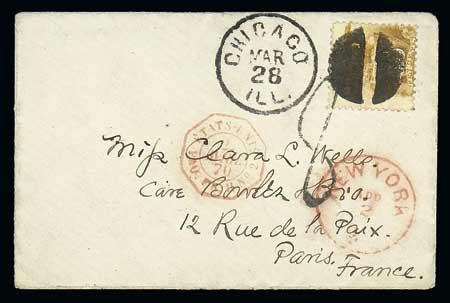 CHICAGO
MAR
28
ILL.
ETATS-UNIS
NEW YORK
APR
2
Miss Clara L. Wells.
Care Bowles & Bro.
12 Rue de la Paix.
Paris.
France.